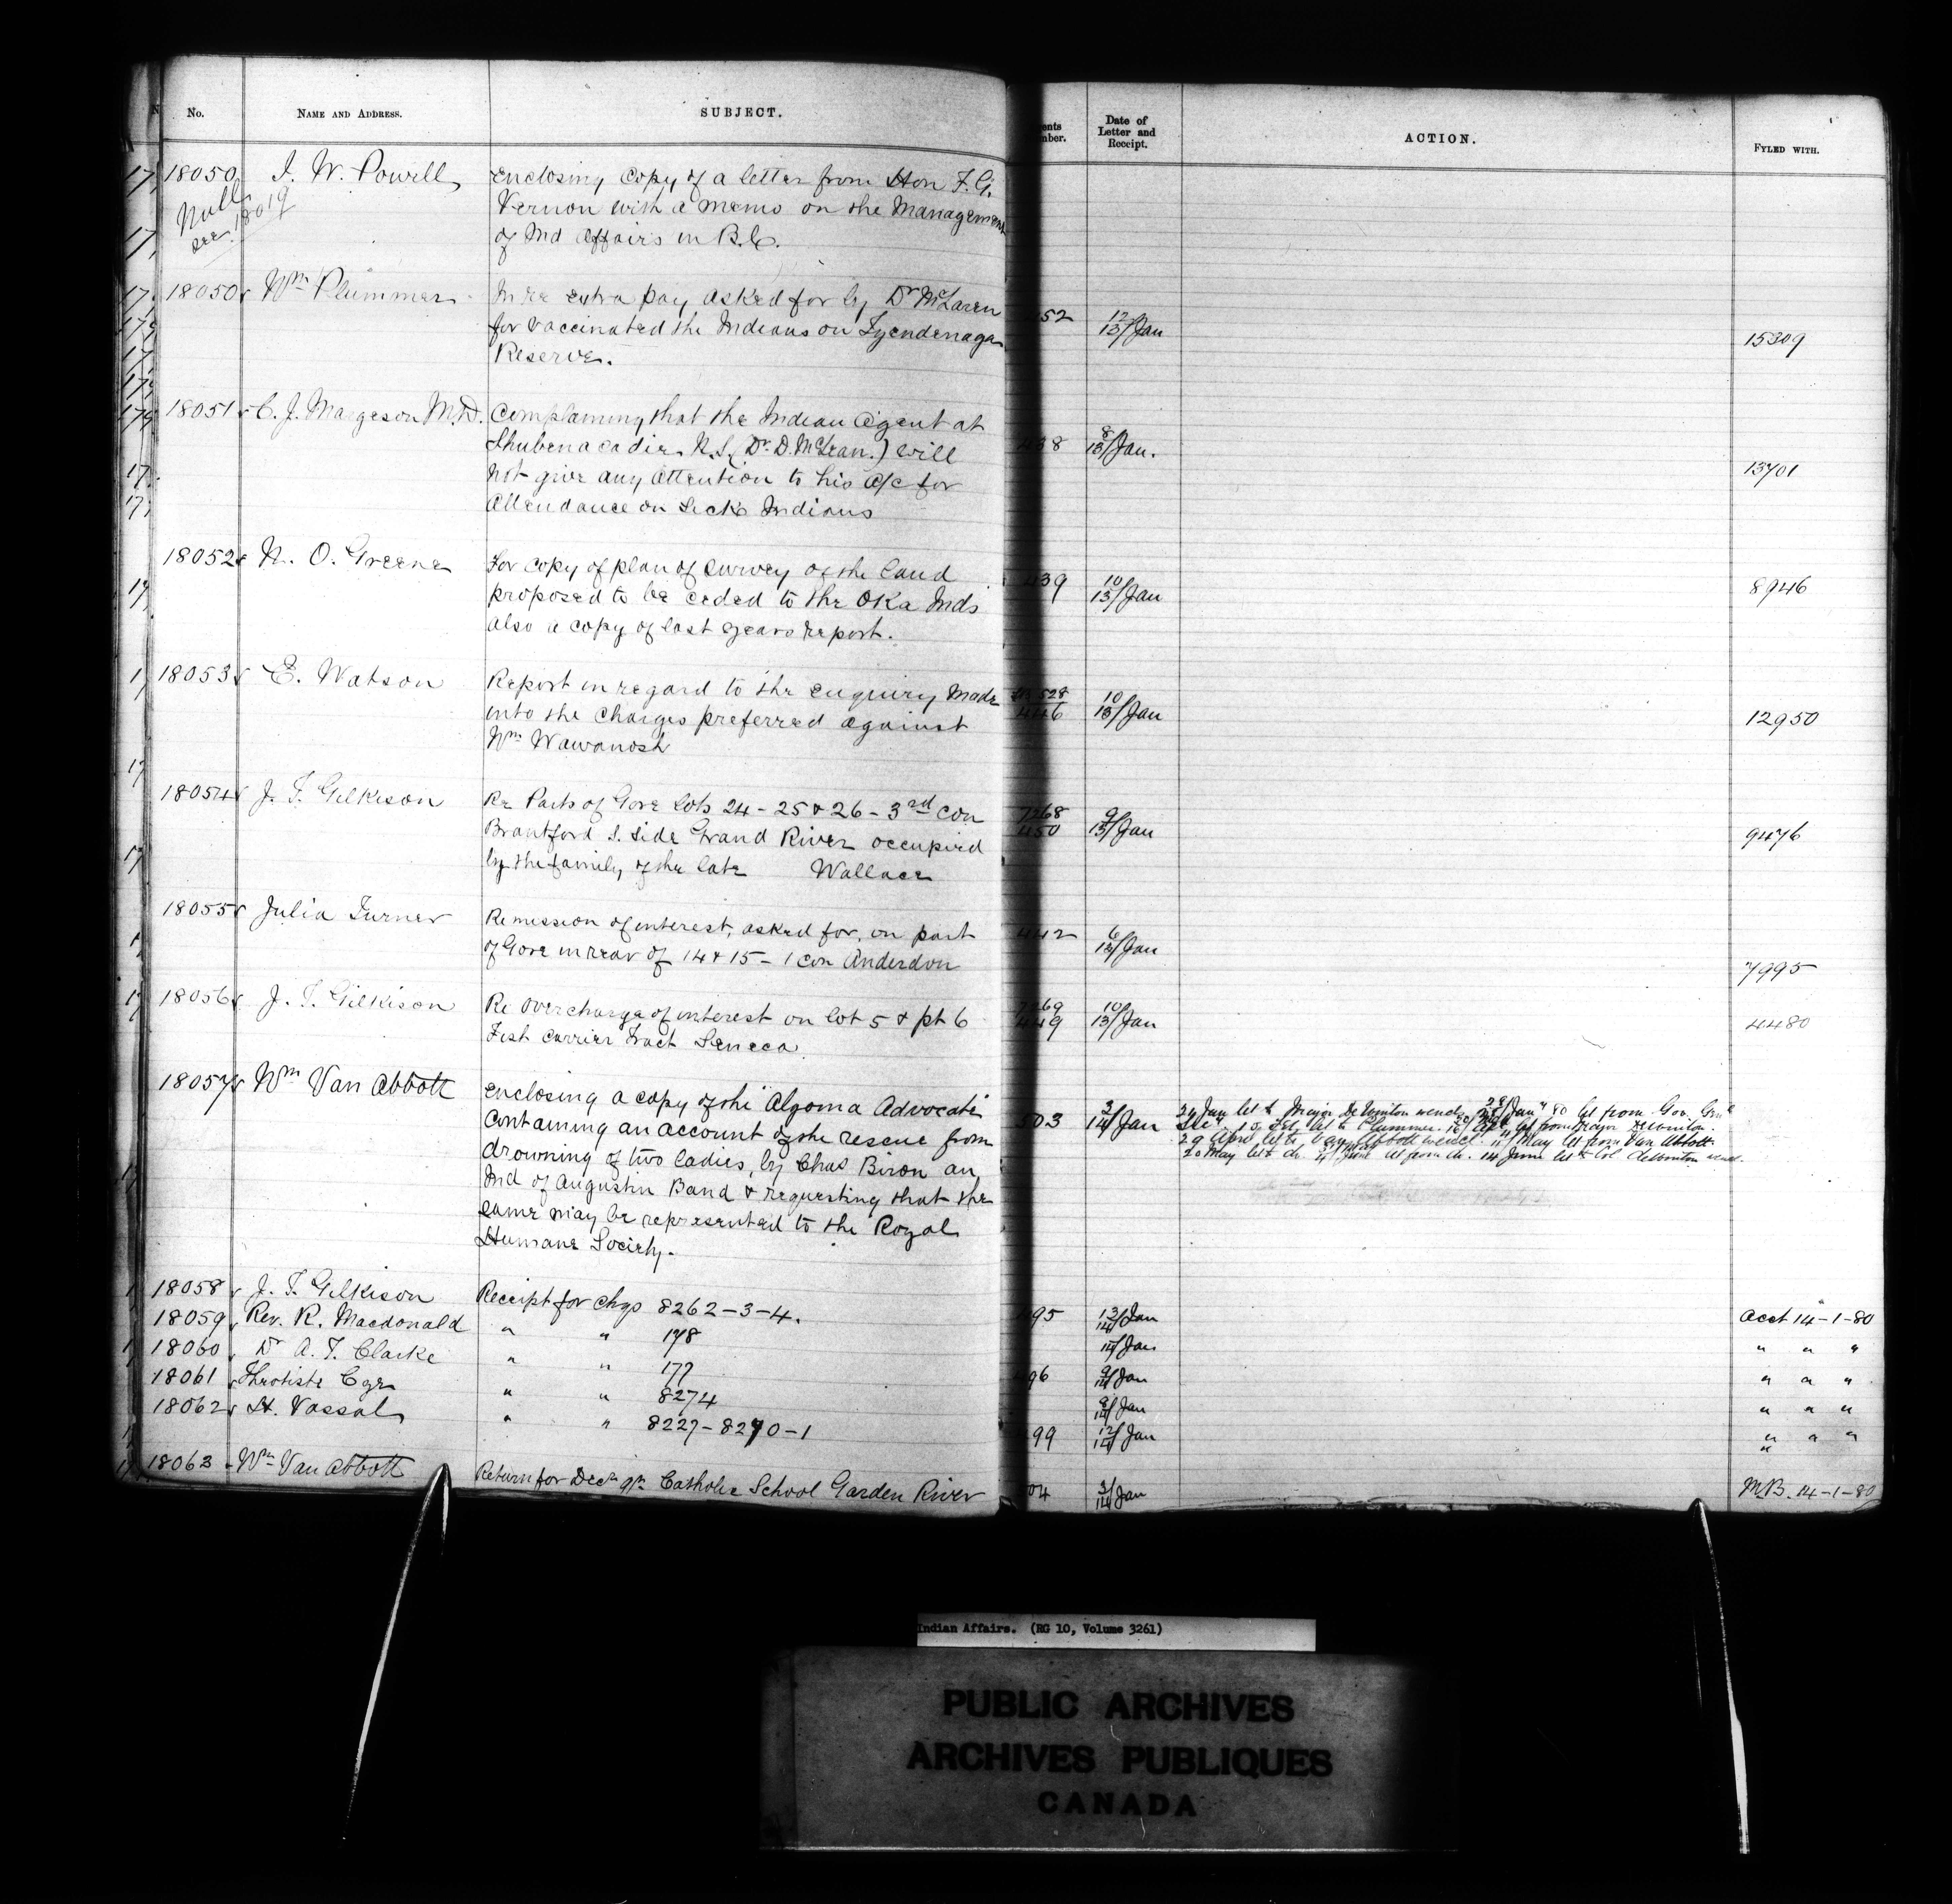 No. NAME AND ADDRESS. SUBJECT.
Date of Letter and Receipt. ACTION. FYLED WITH.
18050 I. W. Powell enclosing copy of a letter from Hon F. G.
Null see 18019
Vernon with a memo on the Management
of Ind Affairs in B.C.
18050 Wm Plummer In re extra pay asked for by Dr McLaren
for vaccinated the Indians on Tyendenaga
Reserve.
52 12/13/Jan 15309
18051 C. J. Margeson M.D. Complaining that the Indian Agent at
Shubenacadie N.S. (Dr. D. McLean.) will
not give any attention to his a/c for
attendance on Sick Indians
438 8/13/Jan. 13701
18052 N. O. Greene For copy of plan of survey of the land
proposed to be ceded to the Oka Inds
also a copy of last years report.
439 10/13/Jan 8946
18053 E. Watson Report in regard to the enquiry made
into the charges preferred against
Wm Wawanosh
528
446 10/13/Jan 12950
18054 J. T. Gilkison Re Parts of Gore lots 24 - 25 & 26 - 3rd con
Brantford S. side Grand River occupied
by the family of the late Wallace
7268
450 9/13/Jan 9476
18055 Julia Turner Remission of interest, asked for, on part
of Gore in rear of 14 & 15 - 1 con Anderdon
442 6/13/Jan 7995
18056 J. T. Gilkison Re overcharge of interest on lot 5 & pt 6
Fish carrier Tract Seneca
7269
449 10/13/Jan 4480
18057 Wm Van Abbott enclosing a copy of the "Algoma Advocate"
containing an account of the rescue from
drowning of two ladies, by Chas Biron an
Ind of Augustin Band & requesting that the
same may be represented to the Royal
Humane Society.
503 3/14/Jan
24 Jan let to Major De Winton 28/Jan 80 let from Gov. Genl
let to Plummer. let from Major DeWinton.
29 April let to Van Abbott 11 May let from Van Abbott.
20 May let to do. 4 June let from do. 14 June let to Col DeWinton
18058 J. T. Gilkison Receipt for chqs 8262-3-4. 95 13/14/Jan Acct 14-1-80
18059 Rev. R. Macdonald " " 178 14/Jan " " "
18060 Dr A. T. Clarke " " 177 96 9/14/Jan " " "
18061 " " 8274 9/14/Jan " " "
18062 H. Vassal " " 8227-8270-1 99 12/14/Jan " " "
18063 Wm Van Abbott Return for Decr qr Catholic School Garden River 04 3/14/Jan M.B. 14-1-80
Indian Affairs. (RG 10, Volume 3261)
PUBLIC ARCHIVES
ARCHIVES PUBLIQUES
CANADA